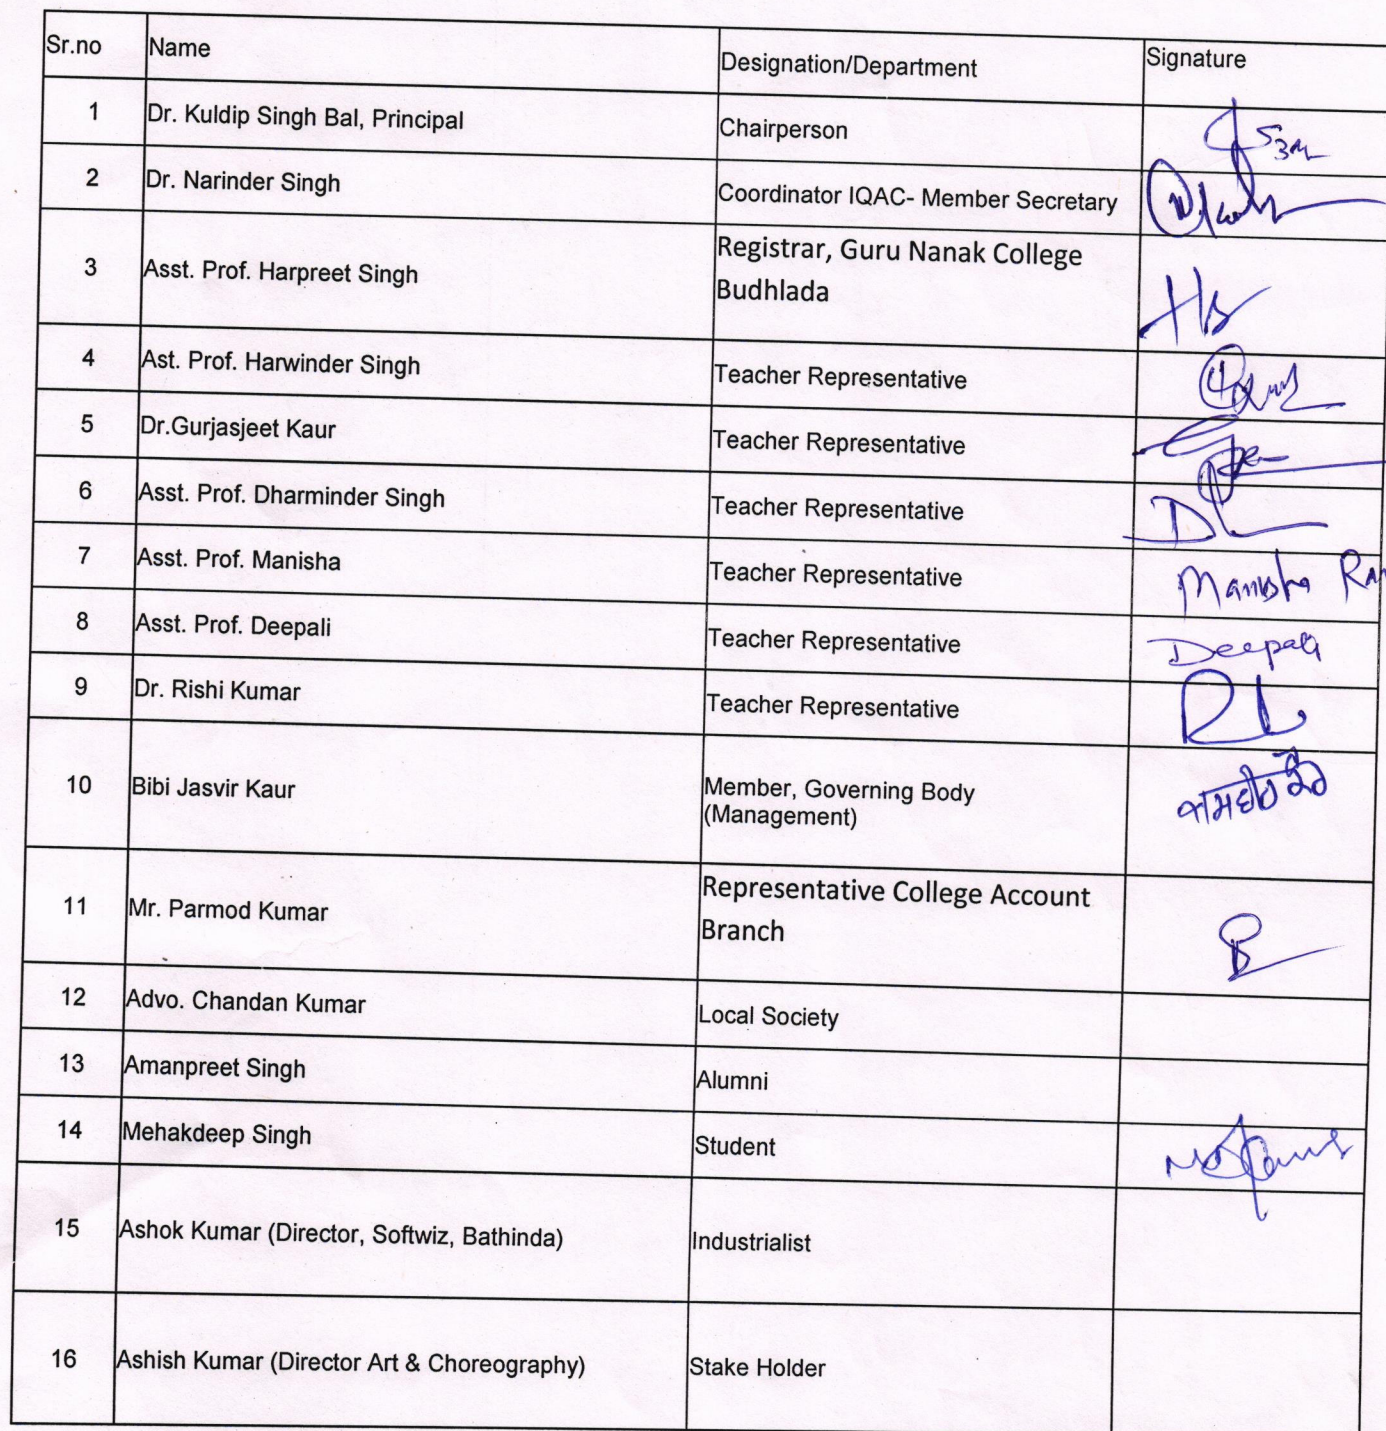 Sr.no Name Designation/Department Signature
1 Dr. Kuldip Singh Bal, Principal Chairperson
2 Dr. Narinder Singh Coordinator IQAC- Member Secretary
3 Asst. Prof. Harpreet Singh Registrar, Guru Nanak College
Budhlada
4 Ast. Prof. Harwinder Singh Teacher Representative
5 Dr.Gurjasjeet Kaur Teacher Representative
6 Asst. Prof. Dharminder Singh Teacher Representative
7 Asst. Prof. Manisha Teacher Representative Manisha
8 Asst. Prof. Deepali Teacher Representative Deepali
9 Dr. Rishi Kumar Teacher Representative
10 Bibi Jasvir Kaur Member, Governing Body
(Management)
11 Mr. Parmod Kumar Representative College Account
Branch
12 Advo. Chandan Kumar Local Society
13 Amanpreet Singh Alumni
14 Mehakdeep Singh Student
15 Ashok Kumar (Director, Softwiz, Bathinda) Industrialist
16 Ashish Kumar (Director Art & Choreography) Stake Holder